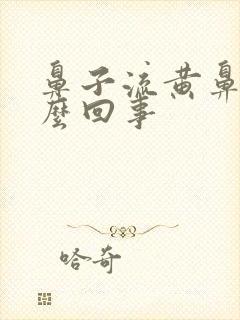 鼻子流黄鼻
麼回事
哈奇